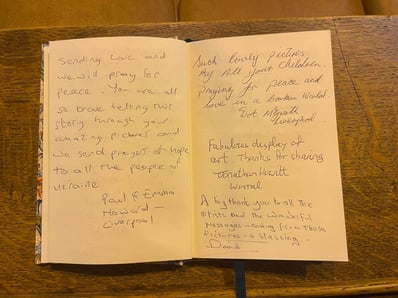 Sending Love and
we will pray for
peace. You are all
so brave telling this
story through your
amazing pictures and
we send prayers of hope
to all the people of
Ukraine
Paul & Emma
Howard -
Liverpool
Such lovely pictures
By All your Children.
Praying for peace and
love in a broken world.
Dot
Liverpool
Fabulous display of
art. Thanks for sharing
Jonathan
Wirral
A big thank you to all the
artists and the wonderful
messages - coming from those
pictures - a blessing.